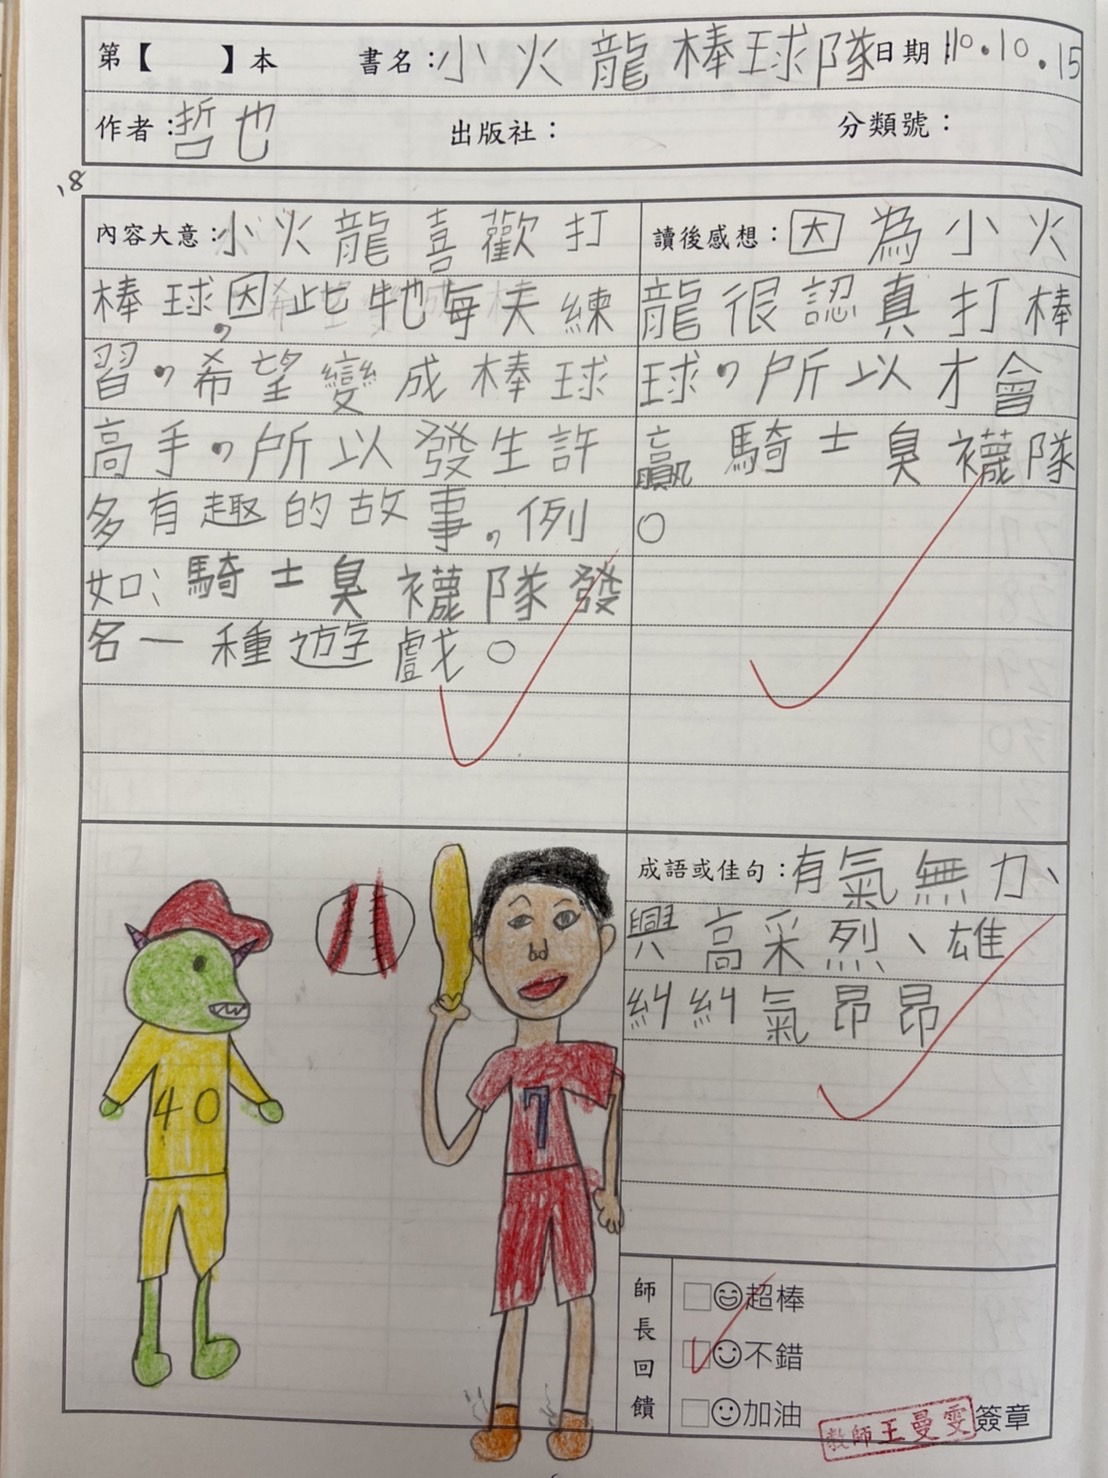 第【 】本 書名：小火龍棒球隊 日期：110.10.15
作者：哲也 出版社： 分類號：
18
內容大意：小火龍喜歡打
棒球，因此牠每天練
習，希望變成棒球
高手，所以發生許
多有趣的故事。例
如：騎士臭襪隊發
名一種遊戲。
讀後感想：因為小火
龍很認真打棒
球，所以才會
贏騎士臭襪隊
。
40
7
成語或佳句：有氣無力、
興高采烈、雄
糾糾氣昂昂
師長回饋
超棒
不錯
加油
教師王曼雯 簽章